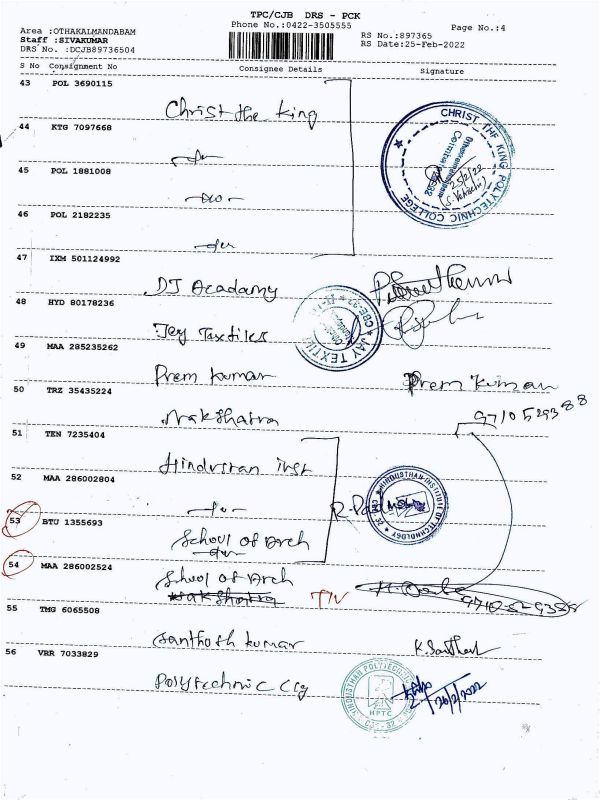 TPC/CJB DRS - PCK
Area :OTHAKALMANDABAM
Phone No.:0422-3505555
Page No.:4
Staff :SIVAKUMAR
RS No.:897365
DRS No. :DCJB89736504
RS Date:25-Feb-2022
S No Consignment No Consignee Details Signature
43 POL 3690115
Christ the King
44 KTG 7097668
-do-
CHRIST THE KING POLYTECHNIC COLLEGE
25/2/22
45 POL 1881008
-do-
46 POL 2182235
-do-
47 IXM 501124992
DJ Acadamy
48 HYD 80178236
Jey Taxtiles
JAY TEXTILE
CBE-32
49 MAA 285235262
Prem Kumar Prem Kumar
50 TRZ 35435224
Nakshatra
51 TEN 7235404
Hindustan inst
52 MAA 286002804
-do-
HINDUSTHAN INSTITUTE OF TECHNOLOGY
53 BTU 1355693
School of Arch
-do-
54 MAA 286002524
School of Arch
Nakshatra
55 TMG 6065508
Santhosh Kumar K. Santhosh
56 VRR 7033829
Polytechnic Clg
HINDUSTHAN POLYTECHNIC
HPTC